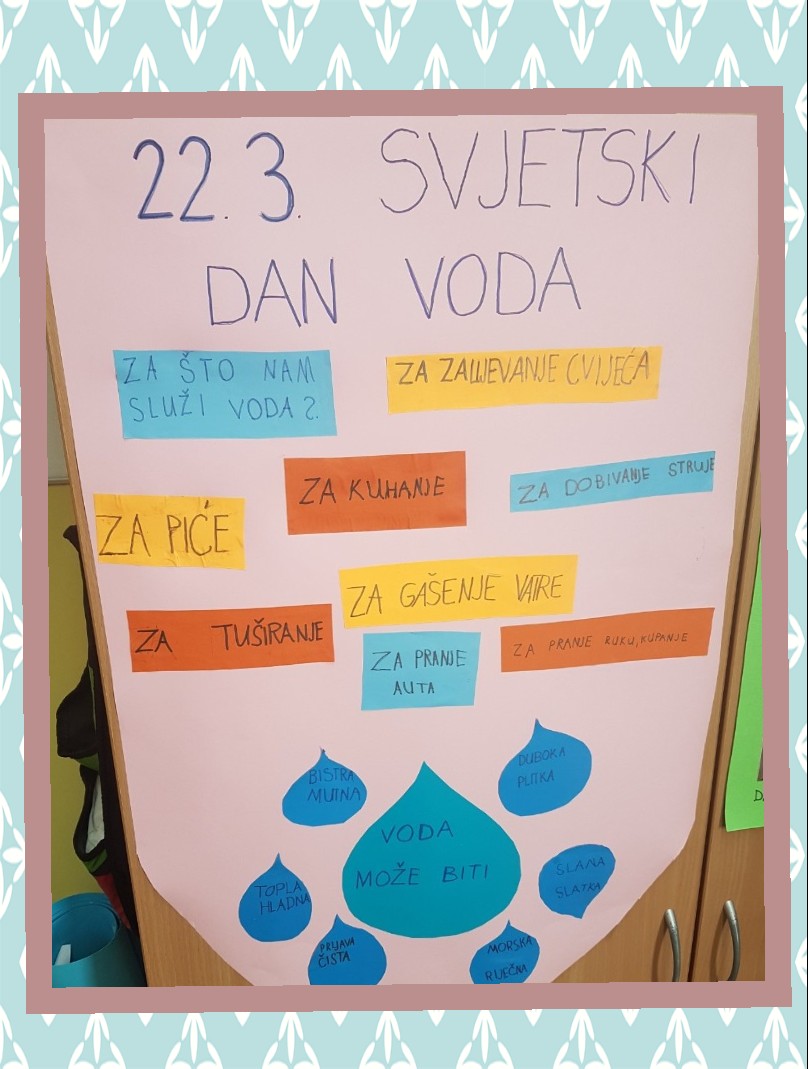 22.3. SVJETSKI
DAN VODA
ZA ŠTO NAM
SLUŽI VODA?.
ZA ZALIJEVANJE CVIJEĆA
ZA KUHANJE
ZA DOBIVANJE STRUJE
ZA PIĆE
ZA GAŠENJE VATRE
ZA TUŠIRANJE
ZA PRANJE
AUTA
ZA PRANJE RUKU, KUPANJE
BISTRA
MUTNA
DUBOKA
PLITKA
VODA
MOŽE BITI
TOPLA
HLADNA
SLANA
SLATKA
PRLJAVA
ČISTA
MORSKA
RIJEČNA